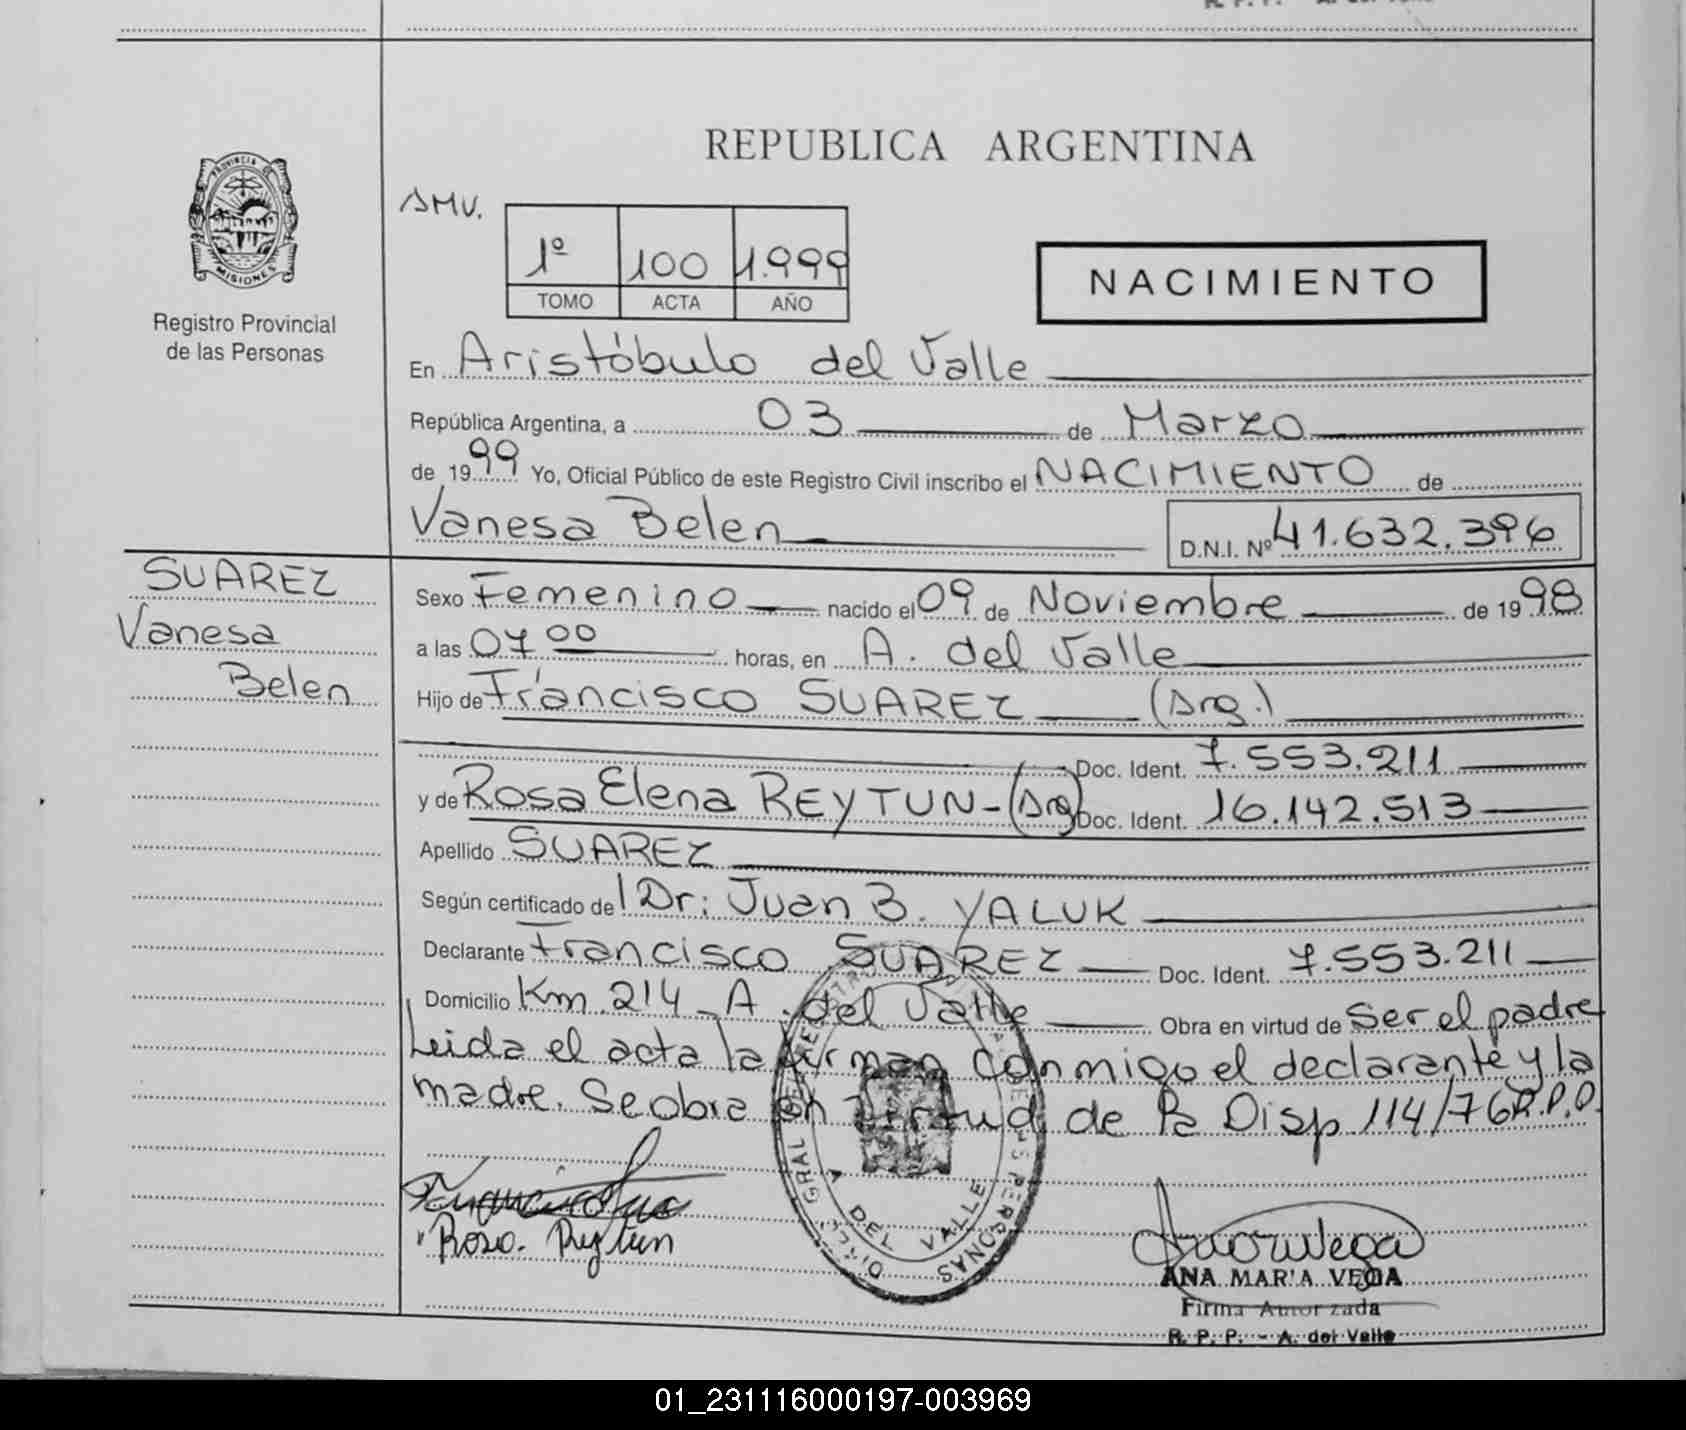 REPUBLICA ARGENTINA
PROVINCIA DE
MISIONES
Registro Provincial
de las Personas
1º 100 1.999
TOMO ACTA AÑO
NACIMIENTO
En Aristóbulo del Valle
República Argentina, a 03 de Marzo
de 1999 Yo, Oficial Público de este Registro Civil inscribo el NACIMIENTO de
Vanesa Belen D.N.I. Nº 41.632.396
SUAREZ
Vanesa
Belen
Sexo Femenino nacido el 09 de Noviembre de 1998
a las 07 00 horas, en A. del Valle
Hijo de Francisco SUAREZ (Arg.)
Doc. Ident. 7.553.211
y de Rosa Elena REYTUN - (Arg) Doc. Ident. 16.142.513
Apellido SUAREZ
Según certificado de Dr: Juan B. YALUK
Declarante Francisco SUAREZ Doc. Ident. 7.553.211
Domicilio Km. 214 - A. del Valle Obra en virtud de Ser el padre
Leida el acta la firman conmigo el declarante y la
madre. Se obra en virtud de la Disp 114/76 R.P.P.
Rosa. Reytun
A. DEL VALLE
ANA MARIA VEGA
Firma Autorizada
R. P. P. - A. del Valle
01_231116000197-003969